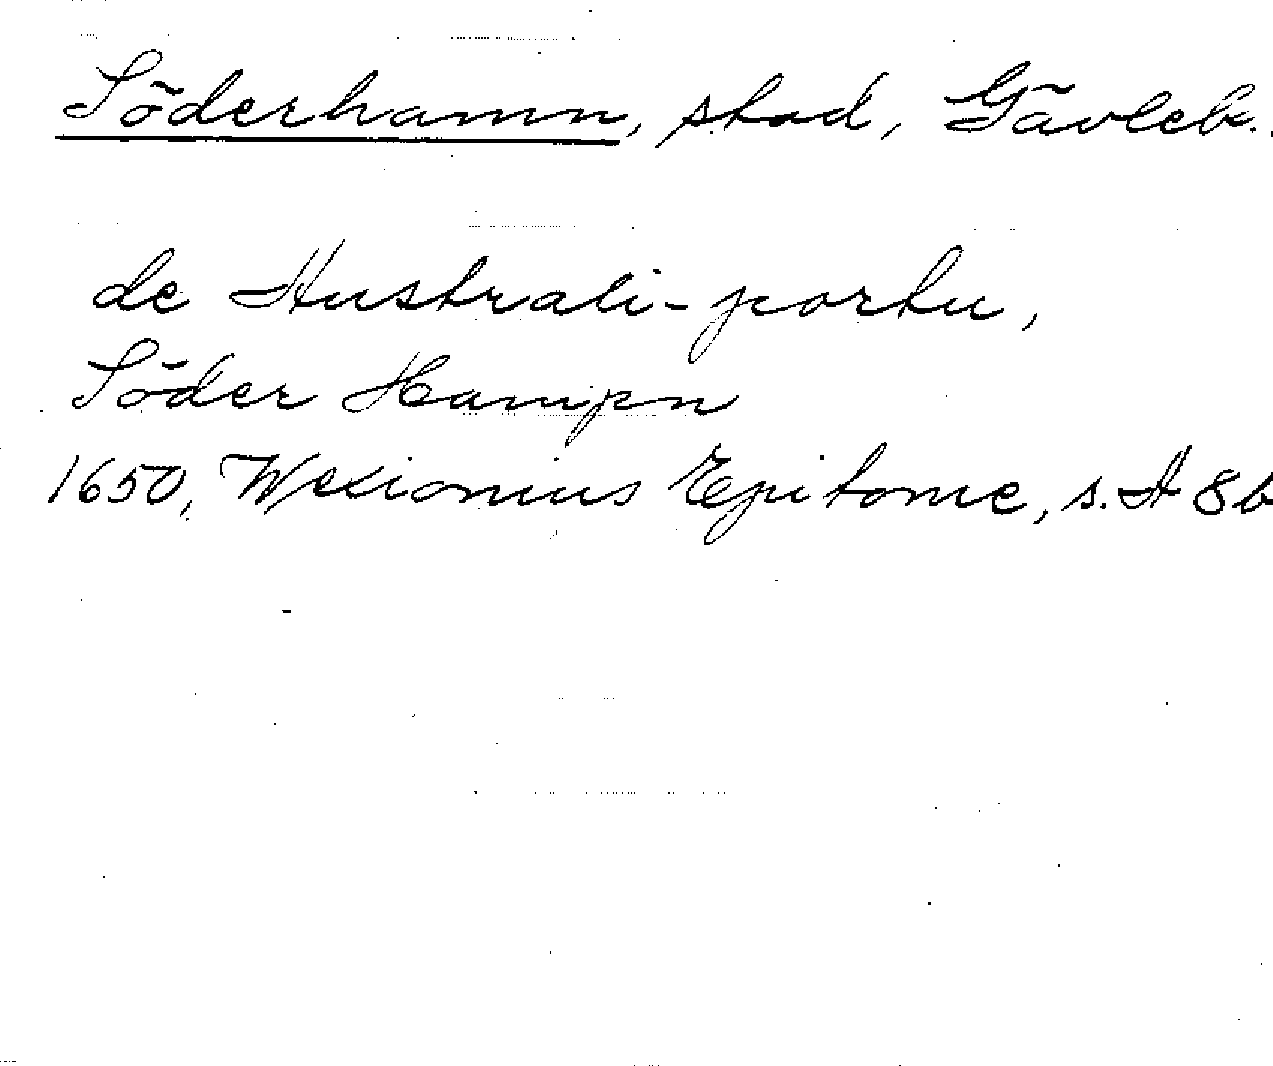 Söderhamn, stad, Gävleb.
de Australi-portu,
Söder Hampn
1650, Wexionius Epitome, s. A 8b